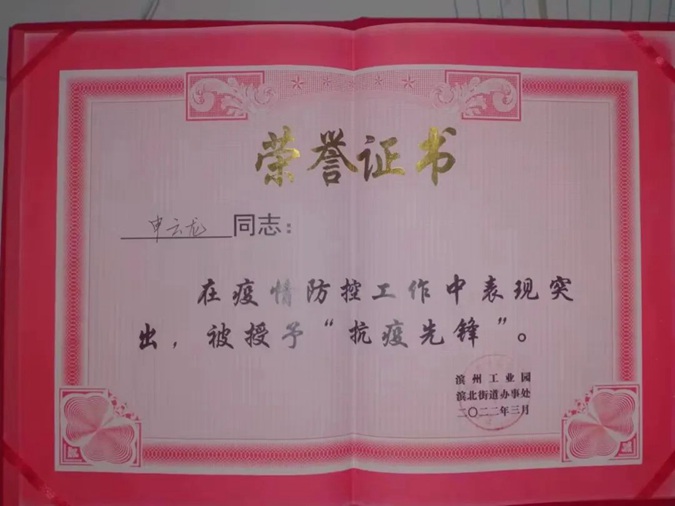 荣誉证书
申云龙 同志:
在疫情防控工作中表现突
出，被授予“抗疫先锋”。
滨州工业园
滨北街道办事处
二〇二二年三月